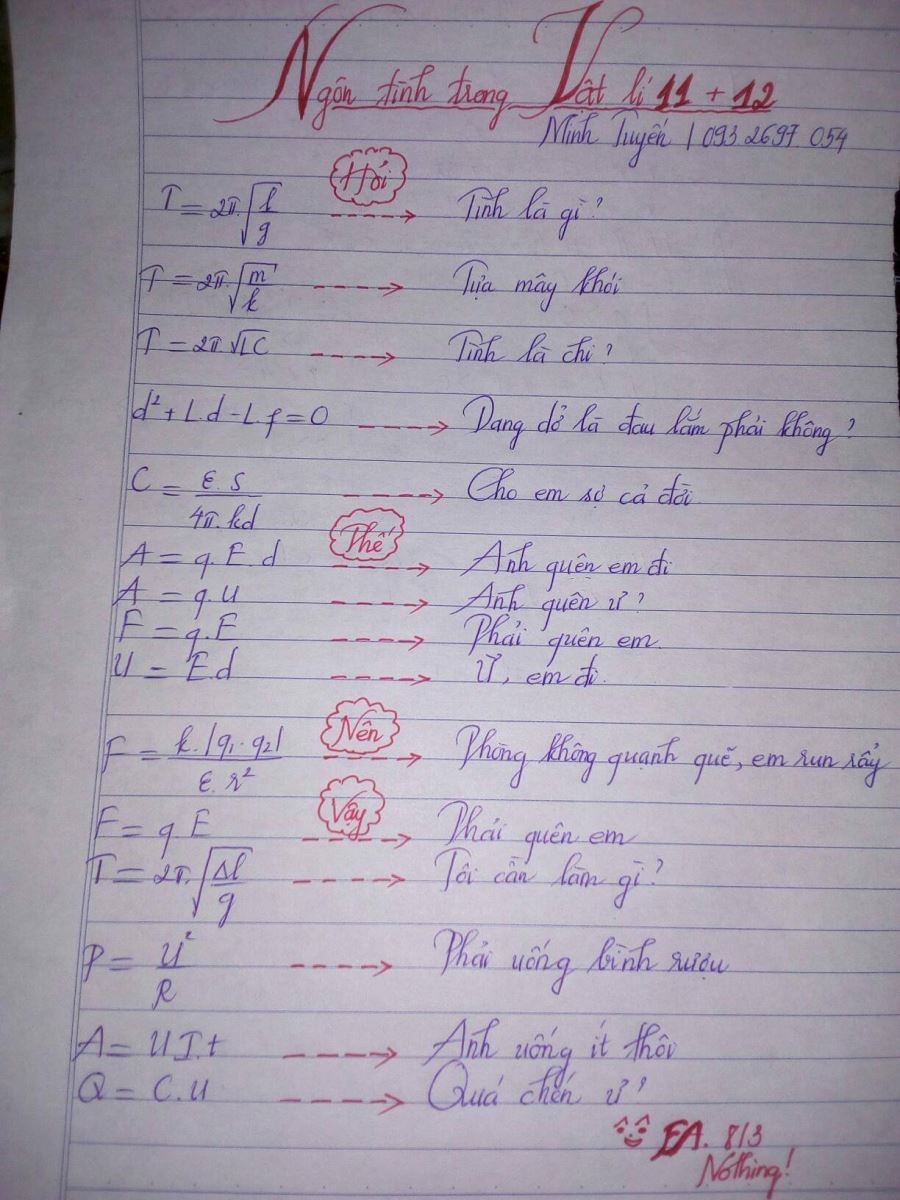 Ngôn tình trong Vật lí 11 + 12
Minh Tuyến / 093 2697 054
Hỏi
T = 2π.√(l/g) ----> Tình là gì?
T = 2π.√(m/k) ----> Tựa mây khói
T = 2π√LC ----> Tình là chi?
d² + L.d - L.f = 0 ----> Dang dở là đau lắm phải không?
C = ε.S/4π.kd ----> Cho em sợ cả đời.
Thế
A = q.E.d ----> Anh quên em đi
A = q.U ----> Anh quên ư?
F = q.E ----> Phải quên em.
U = E.d ----> Ừ, em đi.
Nên
F = k.|q₁.q₂|/ε.r² ----> Phòng không quạnh quẽ, em run rẩy
Vậy
F = q E ----> Phải quên em
T = 2π.√(Δl/g) ----> Tôi cần làm gì?
P = U²/R ----> Phải uống bình rượu
A = U I.t ----> Anh uống ít thôi
Q = C.U ----> Quá chén ư?
FA. 8/3
Nothing!